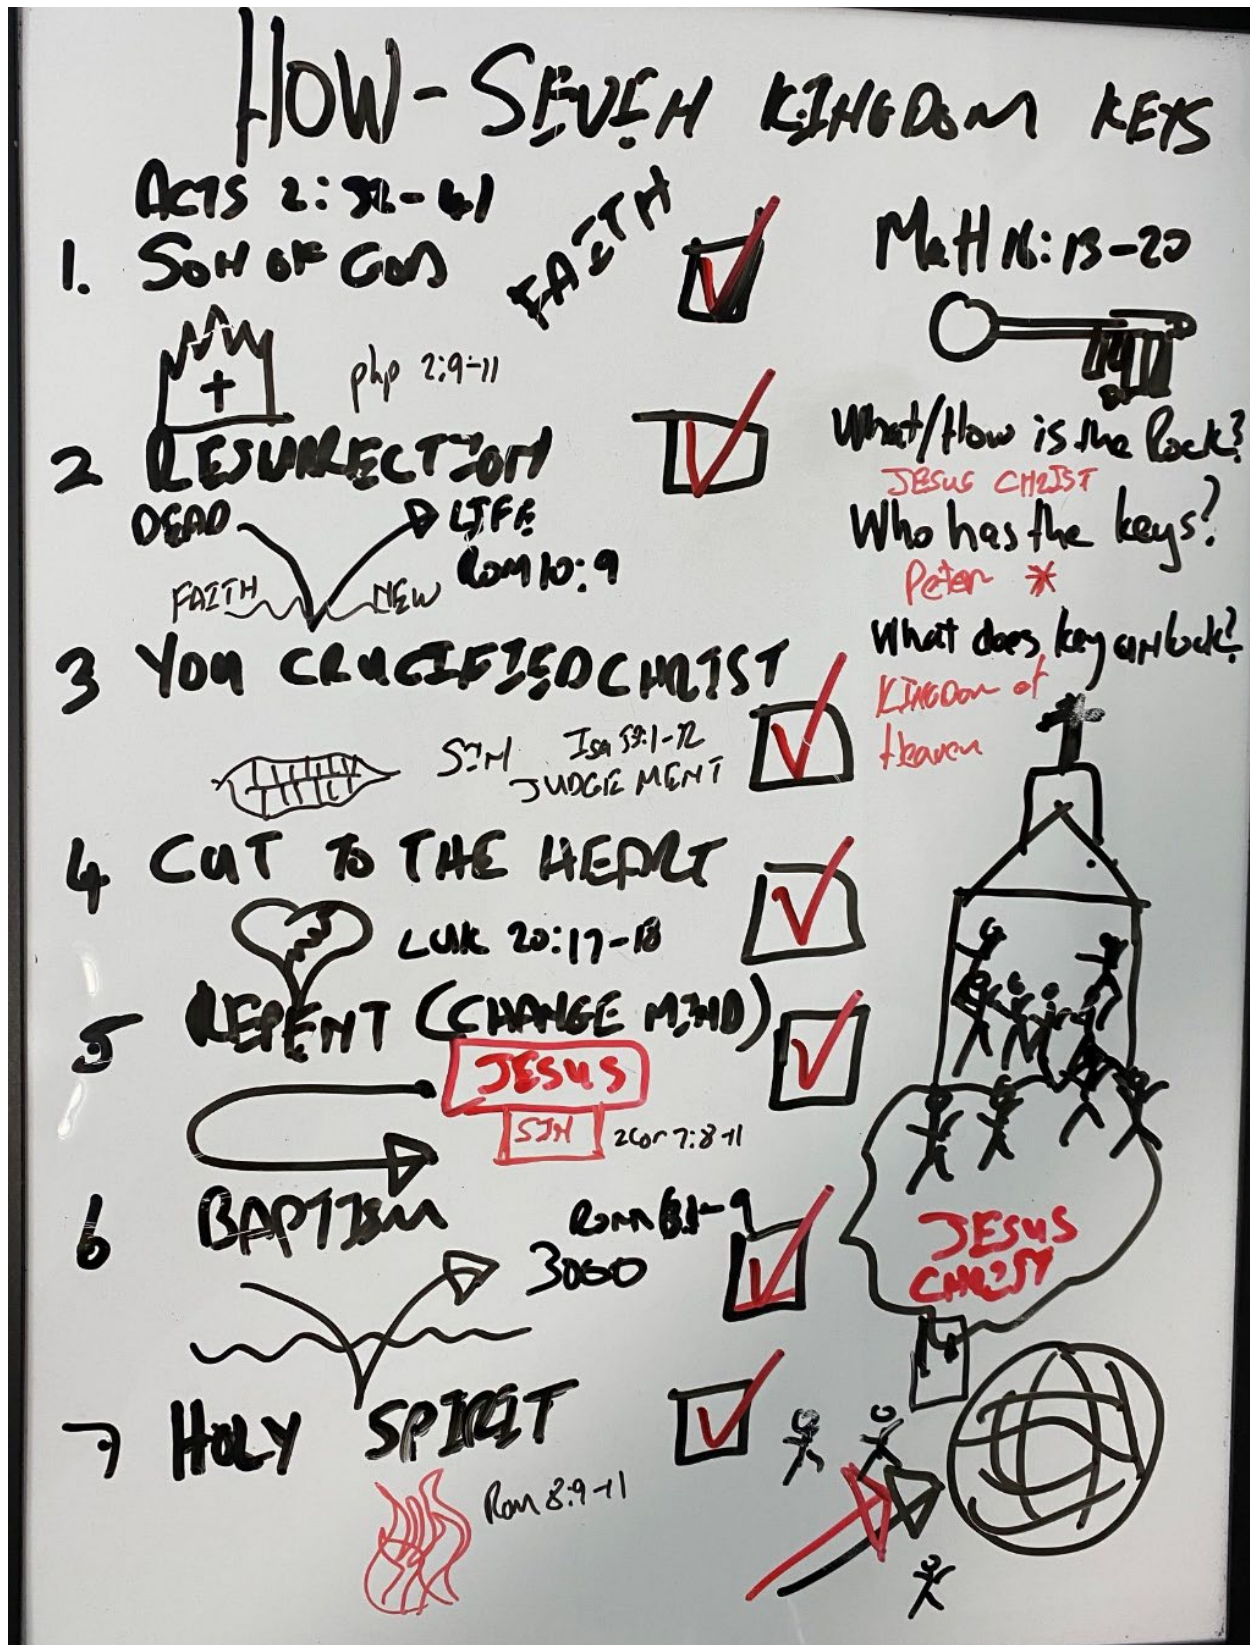 HOW - SEVEN KINGDOM KEYS
ACTS 2:32-41
1. SON OF GOD
FAITH
php 2:9-11
2 RESURRECTION
DEAD
LIFE
Rom 10:9
FAITH
NEW
3 YOU CRUCIFIED CHRIST
SIN
Isa 59:1-
JUDGEMENT
4 CUT TO THE HEART
LUK 20:17-18
5 REPENT (CHANGE MIND)
JESUS
SIN
2 Cor 7:8-11
6 BAPTISM
Rom 6:1-9
3000
7 HOLY SPIRIT
Rom 8:9-11
Matt 16:13-20
What/How is the Rock?
JESUS CHRIST
Who has the keys?
Peter *
What does key unlock?
KINGDOM of
Heaven
JESUS
CHRIST